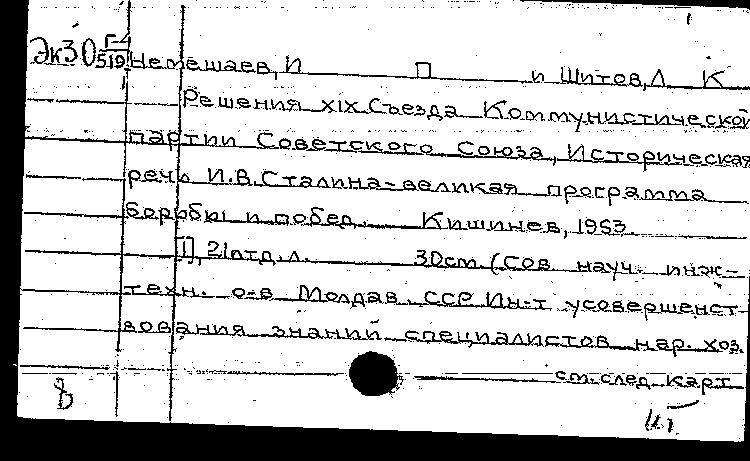 ЭкЗО Г-4/519 Немешаев, И П и Шитов, Л К
Решения XIX Съезда Коммунистической
партии Советского Союза, Историческая
речь И.В.Сталина-великая программа
борьбы и побед. Кишинев, 1953.
[1], 21 отд. л. 30 см (Сов науч. инж-
техн. о-в Молдав. ССР Ин-т усовершенст-
вования знаний специалистов нар. хоз.
см. след карт
8